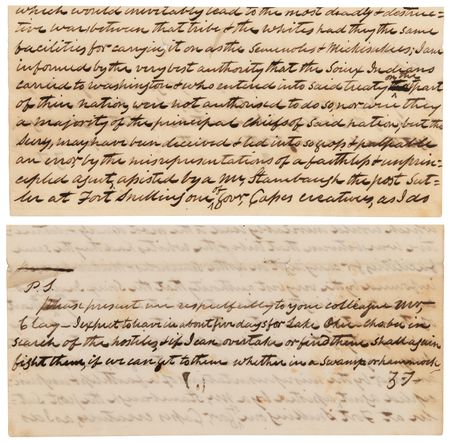 which would inevitably lead to the most deadly & destruc-
tive war between that tribe & the whites had they the same
facilities for carrying it on as the Seminoles & Mickisukies; I am
informed by the very best authority that the Sioux Indians
carried to Washington & who entered into said treaty on the part
of their nation, were not authorised to do so, nor were they
a majority of the principal chiefs of said nation, but the
Secy. may have been deceived & led into so gross & palpable
an error by the misrepresentations of a faithless & unprin-
cepled agent, assisted by a Mr. Stambaugh the post Sut-
ler at Fort Snelling one of Govr. Capes creatures, as I do
P.S.
Please present me respectfully to your colleague Mr.
Clay_ I expect to leave in about five days for Lake Okee chobee in
search of the hostiles & if I can overtake or find them shall again
fight them, if we can get to them whether in a swamp or hammock
Z T_